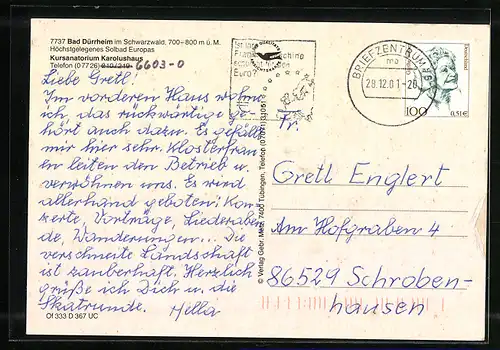 7737 Bad Dürrheim im Schwarzwald, 700-800 m ü. M.
Höchstgelegenes Solbad Europas
Kursanatorium Karolushaus
Telefon (0 77 26) 810/219 6603-0
Liebe Gretl!
Im vorderen Haus wohne
ich, das rückwärtige ge-
hört auch dazu. Es gefällt
mir hier sehr. Klosterfrau-
en leiten den Betrieb u.
verwöhnen uns. Es wird
allerhand geboten: Kon-
zerte, Vorträge, Liederaben-
de, Wanderungen... Die
verschneite Landschaft
ist zauberhaft. Herzlich
grüße ich Dich u. die
Skatrunde. Hella
Of 333 D 367 UC
© Verlag Gebr. Metz, 7400 Tübingen, Telefon (07071)
Ist Ihre
Euro?
BRIEFZENTRUM
ma
29.12.01-20
Deutschland
100
0,51€
Fr.
Gretl Englert
Am Hofgraben 4
86529 Schroben-
hausen